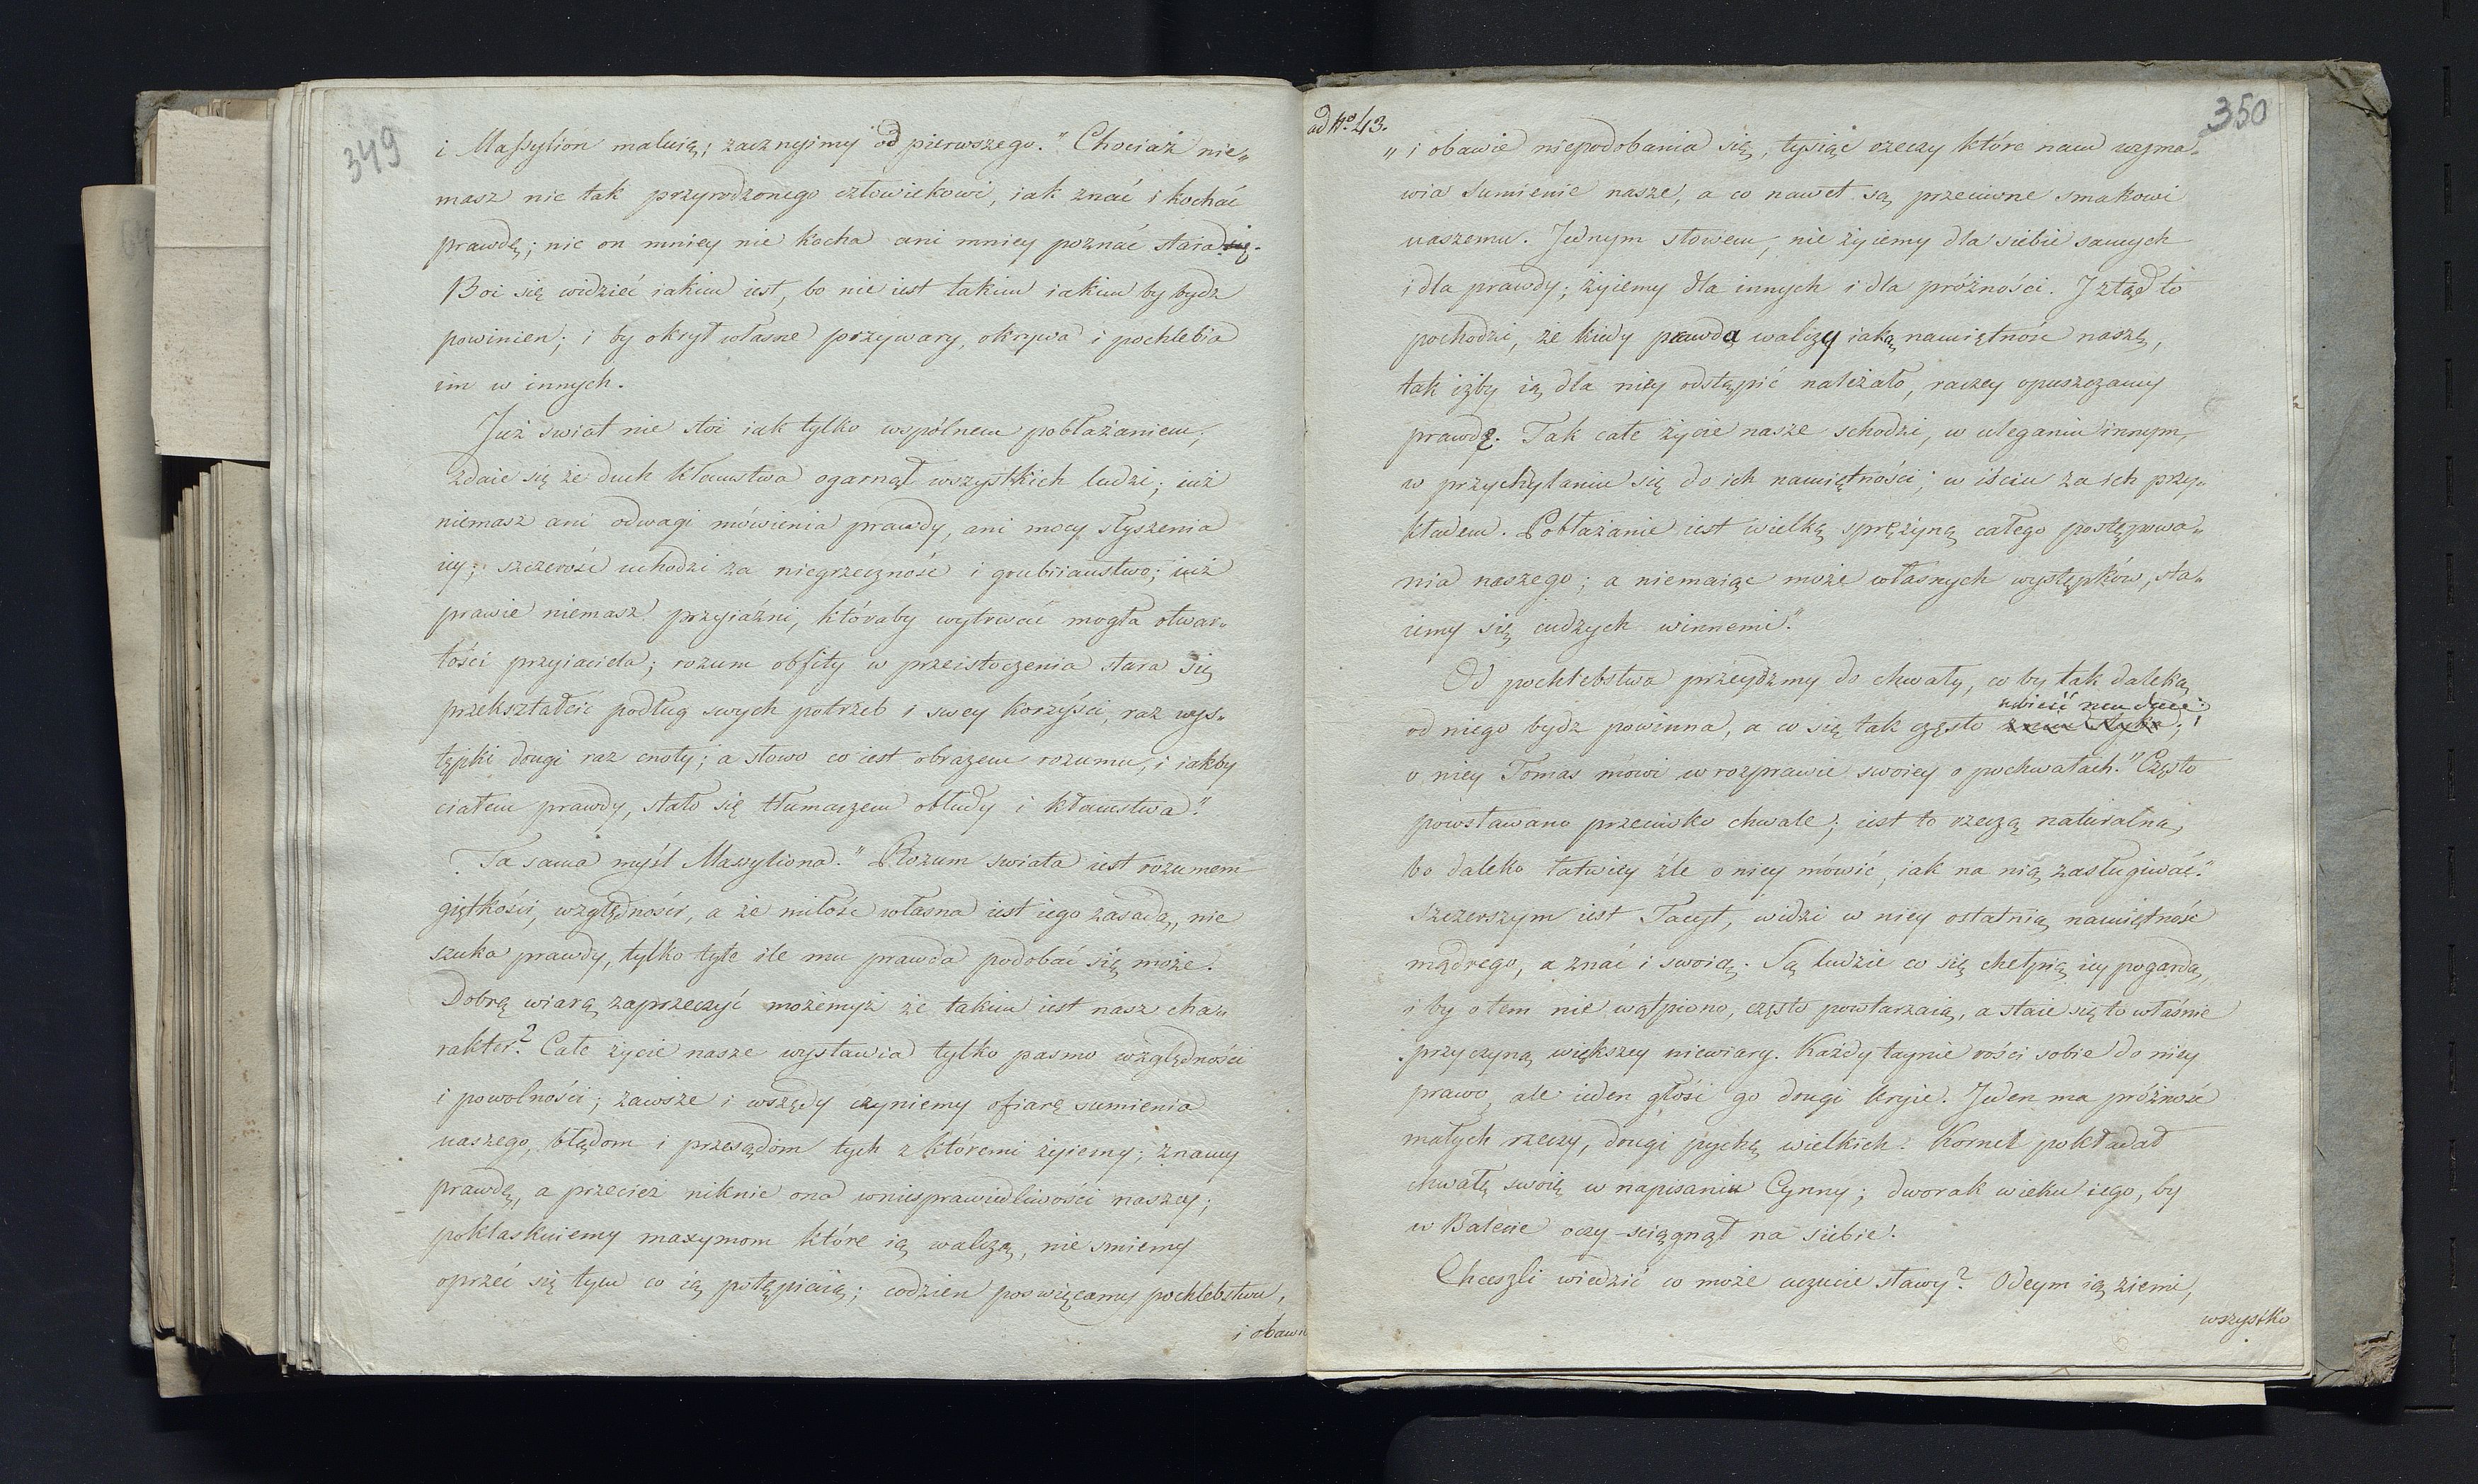 349
i Massylion maluią; zacznyimy od pierwszego." Chociaż nie„
masz nic tak przyrodzonego człowiekowi, iak znać i kochać
prawdę; nic on mniey nie kocha ani mniey poznać stara się.
Boi się widzieć iakim iest, bo nie iest takim iakim by bydz
powinien; i by okrył własne przywary, okrywa i pochlebia
im w innych.
Już swiat nie stoi iak tylko wspólnem pobłażaniem;
zdaie się że duch kłamstwa ogarnął wszystkich ludzi; iuż
niemasz ani odwagi mówienia prawdy, ani mocy słyszenia
iey; szczerość uchodzi za niegrzeczność i grubiiaństwo; iuż
prawie niemasz przyiaźni, któraby wytrwać mogła otwar„
tości przyiaciela; rozum obfity w przeistoczenia stara się
przekształcić podług swych potrzeb i swey korzyści, raz wys„
tępki drugi raz cnoty; a słowo co iest obrazem rozumu, i iakby
ciałem prawdy, stało się tłumaczem obłudy i kłamstwa."
Ta sama myśl Massyliona." Rozum swiata iest rozumem
giętkości, względności, a że miłość własna iest iego zasadą, nie
szuka prawdy, tylko tyle ile mu prawda podobać się może.
Dobrą wiarą zaprzeczyć możemyż że takim iest nasz cha„
rakter? Całe życie nasze wystawia tylko pasmo względności
i powolności; zawsze i wszędy czyniemy ofiarę sumienia
naszego, błędom i przesądom tych z któremi żyiemy; znamy
prawdę, a przecież niknie ona wniesprawiedliwości naszey;
poklaskuiemy maxymom które ią walczą, nie smiemy
oprzeć się tym co ią potępiaią; codzien poswięcamy pochlebstwu,
i obawie
ad No. 43.
350
„i obawie niepodobania się, tysiąc rzeczy które nam wyma„
wia sumienie nasze, a co nawet są przeciwne smakowi
naszemu. Jednym słowem, nie żyiemy dla siebie samych
i dla prawdy; żyiemy dla innych i dla próżności. I ztąd to
pochodzi, że kiedy prawda walczy iaką namiętność naszę,
tak iżby ią dla niey odstąpić należało, raczey opuszczamy
prawdę. Tak całe życie nasze schodzi, w uleganiu innym,
w przychylaniu się do ich namiętności; w iściu za ich przy„
kładem. Pobłażanie iest wielką sprężyną całego postępowa„
nia naszego; a niemaiąc może własnych występków, sta„
iemy się cudzych winnemi."
Od pochlebstwa przeydźmy do chwały, co by tak daleką
od niego bydz powinna, a co się tak często uwieść mu daie; i
o niey Tomas mówi w rozprawie swoiey o pochwałach." Często
powstawano przeciwko chwale; iest to rzeczą naturalną,
bo daleko łatwiey źle o niey mówić, iak na nią zasługiwać."
Szczerszym iest Tacyt, widzi w niey ostatnią namiętność
mądrego, a znać i swoią. Są ludzie co się chełpią iey pogardą,
i by o tem nie wątpiono, często powtarzaią, a staie się to właśnie
przyczyną większey niewiary. Każdy taynie rości sobie do niey
prawo, ale ieden głosi go drugi kryie. Jeden ma próżność
małych rzeczy, drugi pychę wielkich. Kornel pokładał
chwałę swoię w napisaniu Cynny; dworak wieku iego, by
w Balecie oczy sciągnął na siebie.
Chceszli wiedzić co może uczucie sławy? Odeym ią ziemi,
wszystko